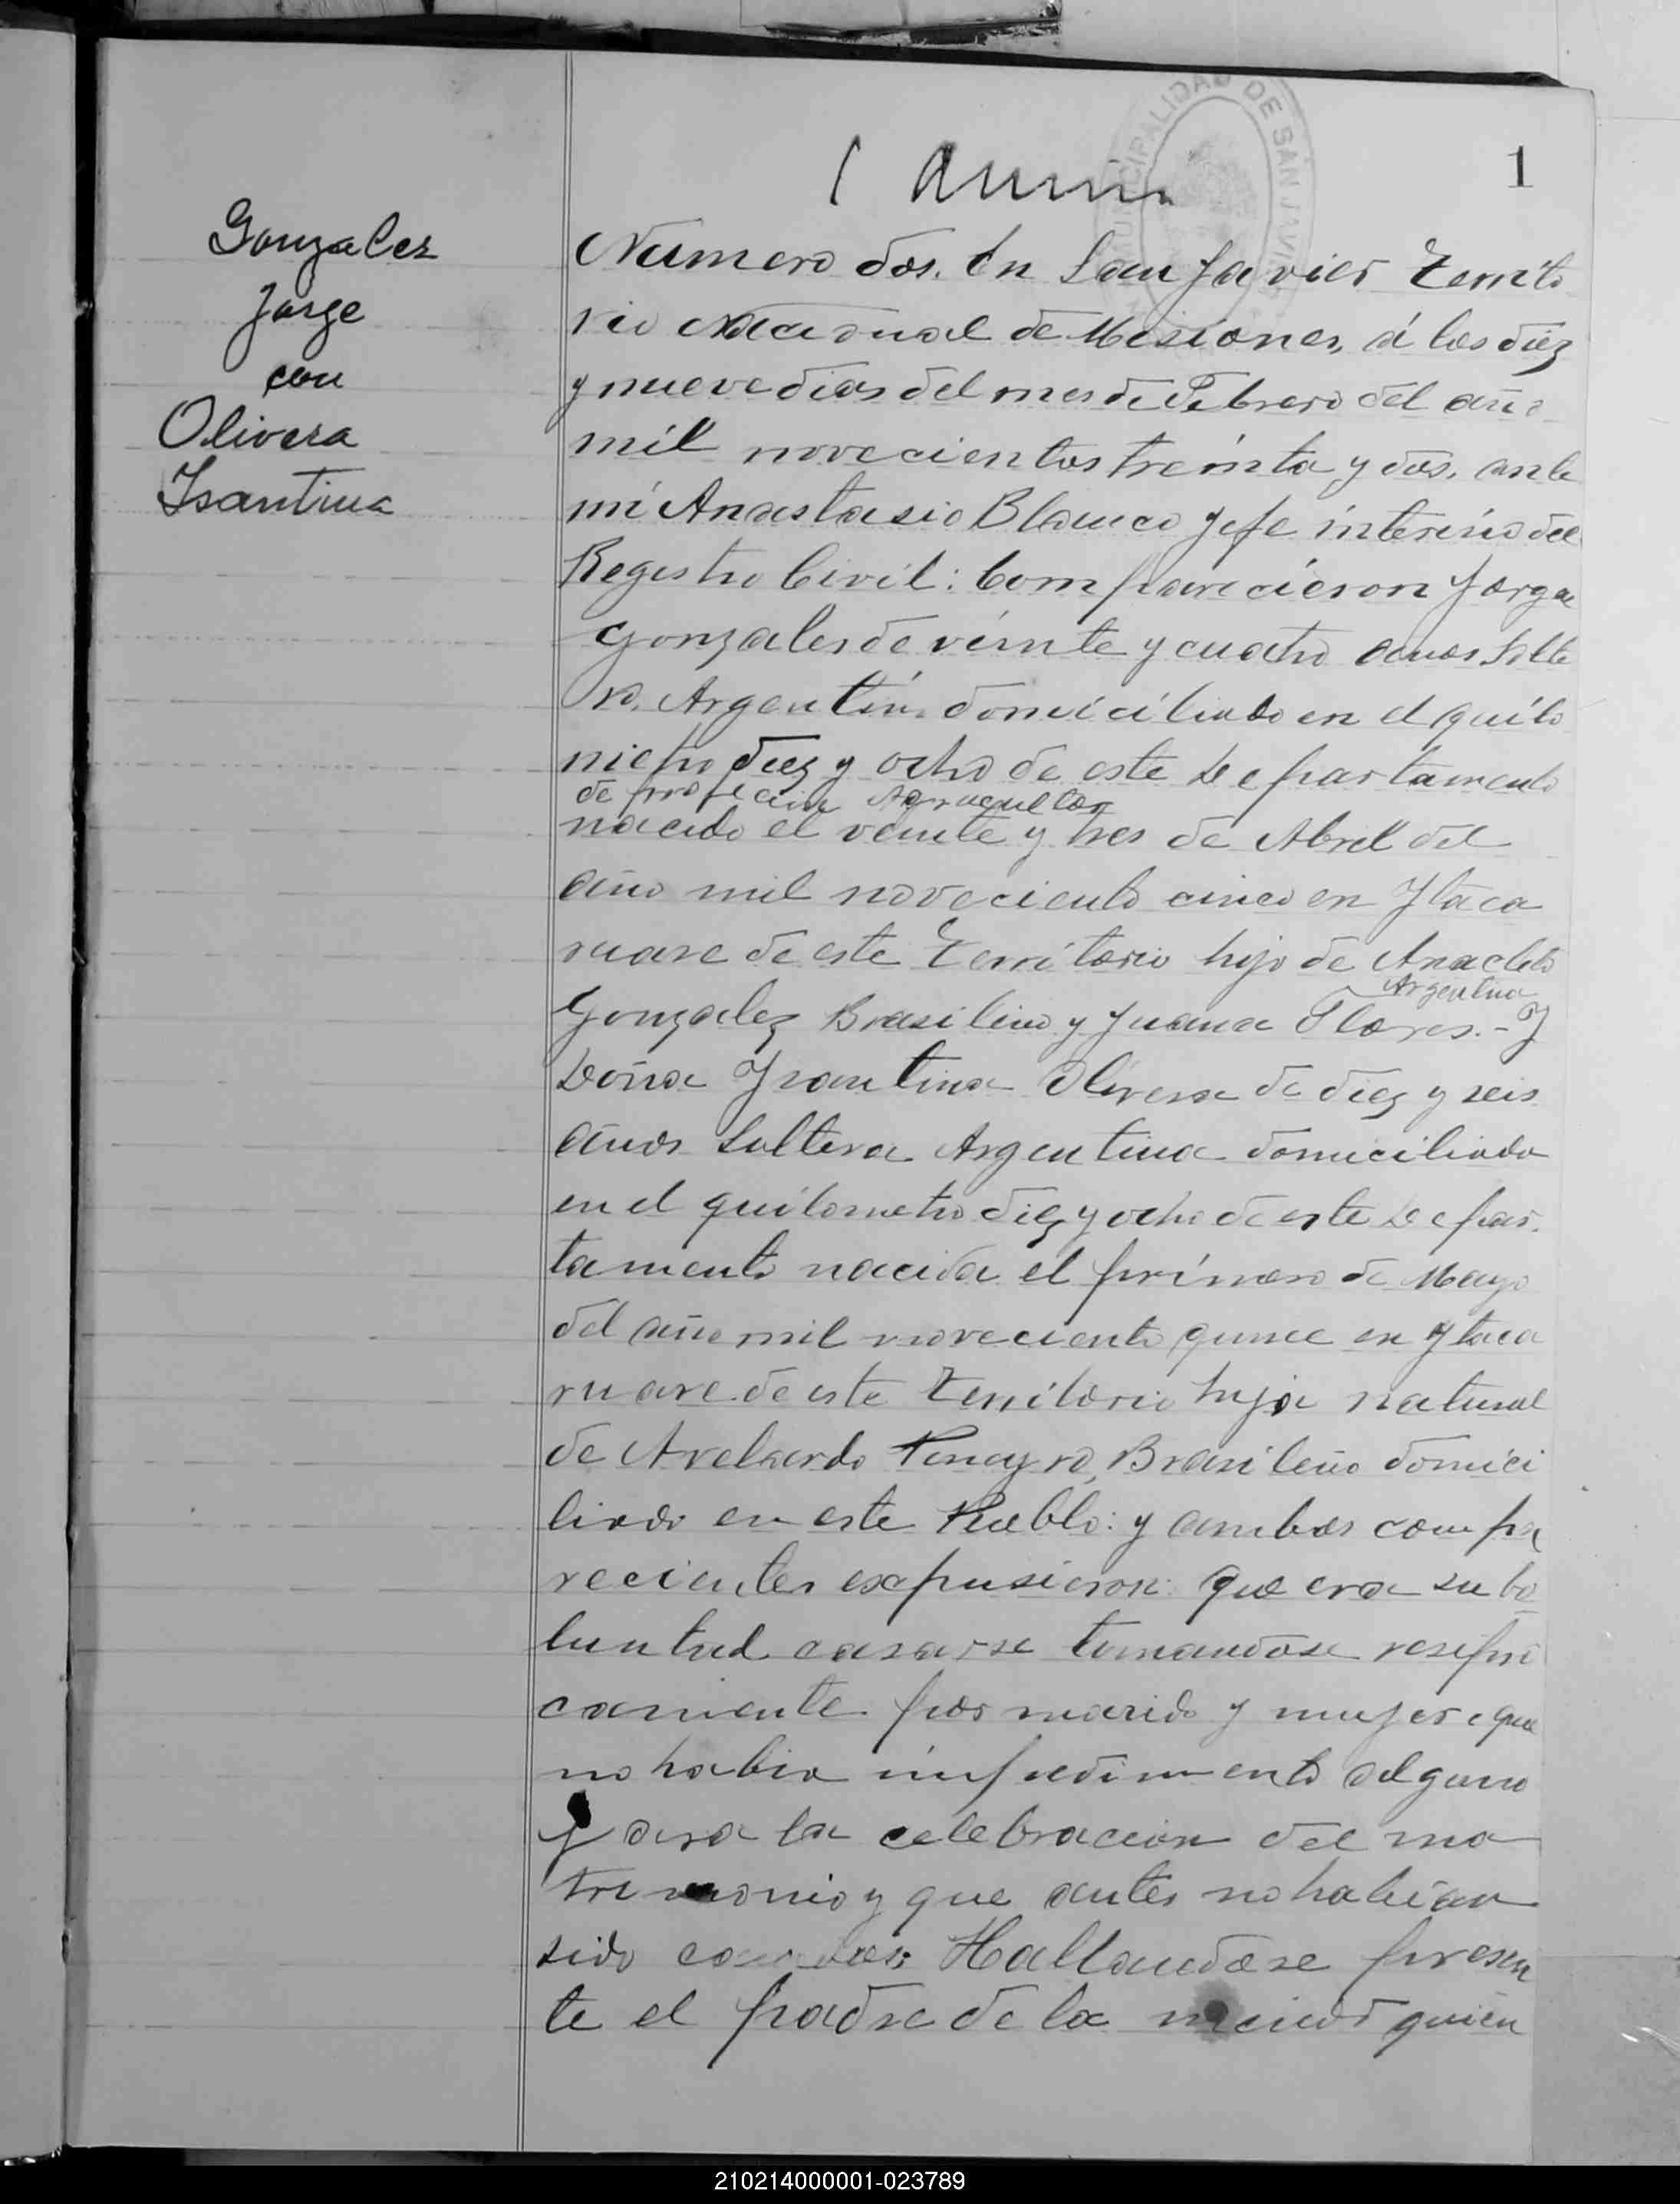 MUNICIPALIDAD DE SAN JAVIER
1
Gonzalez
Jorge
con
Olivera
Isantina
Numero dos. En San Javier Territo
rio Nacional de Misiones, á los diez
y nueve dias del mes de Febrero del año
mil novecientos treinta y dos, ante
mi Anastasio Blanco Jefe interino del
Registro Civil: Comparecieron Jorge
Gonzales de veinte y cuatro años Solte
ro, Argentino domiciliado en el quilo
metro diez y ocho de este Departamento
de profecion Agricultor
nacido el veinte y tres de Abril del
año mil noveciento cinco en Ytaca
ruare de este Territorio hijo de Anacleto
Argentina
Gonzalez Brasilino y Juana Flores.- Y
Doña Ysantina Olivera de diez y seis
años Soltera Argentina domiciliada
en el quilometro diez y ocho de este Depar.
tamento nacida el primero de Mayo
del año mil noveciento quince en Ytaca
ruare de este Territorio hija natural
de Avelardo Brasileño domici
liado en este Pueblo: y ambos compa
recientes expusieron: que era su bo
luntad casarse tomandose resipro
camente por marido y mujer, que
no habia impedimento alguno
para la celebracion del ma
trimonio y que antes no habian
sido casados; Hallandose presen
te el padre de la menor quien
210214000001-023789